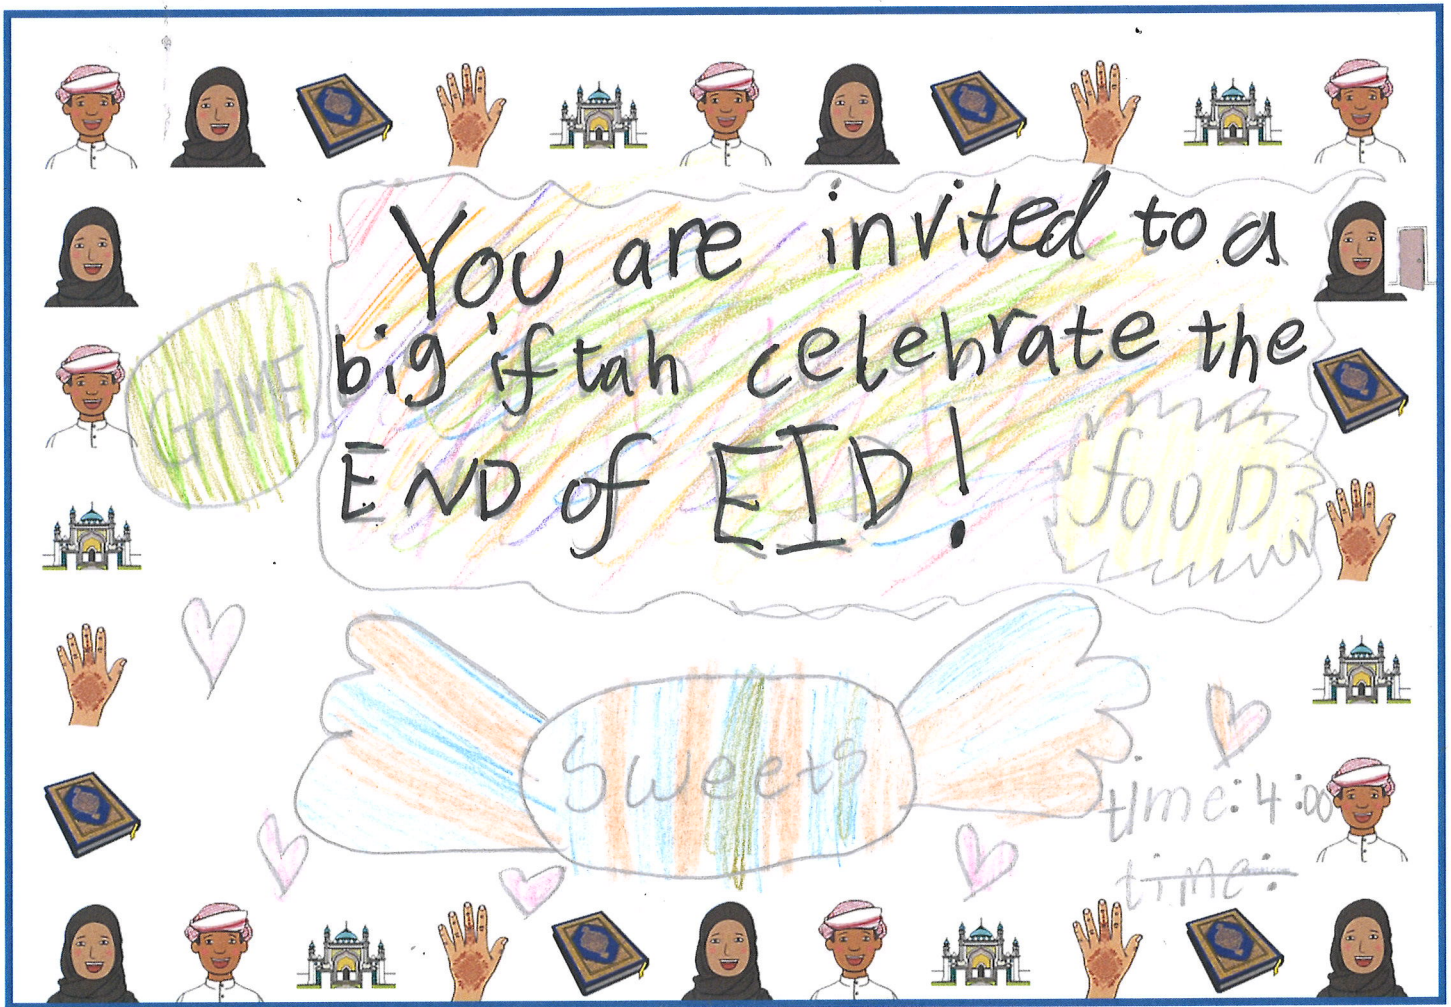 You are invited to a
big iftah celebrate the
END of EID!
GAME
fooD
Sweets
time: 4:00
time: